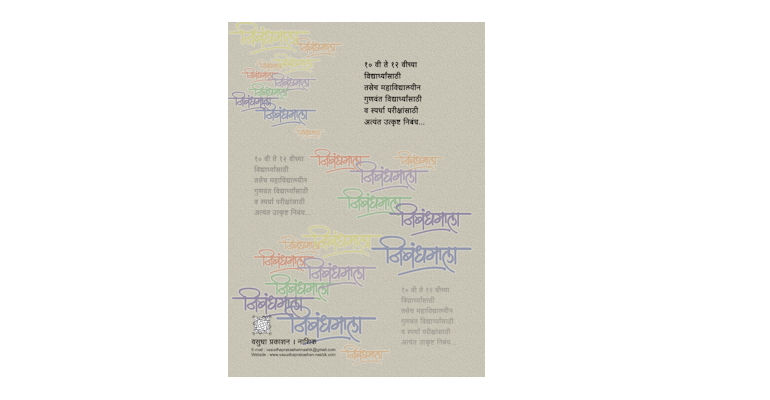 निबंधमाला
निबंधमाला
निबंधमाला
निबंधमाला
निबंधमाला
निबंधमाला
निबंधमाला
निबंधमाला
१० वी ते १२ वीच्या
विद्यार्थ्यांसाठी
तसेच महाविद्यालयीन
गुणवंत विद्यार्थ्यांसाठी
व स्पर्धा परीक्षांसाठी
अत्यंत उत्कृष्ट निबंध...
१० वी ते १२ वीच्या
विद्यार्थ्यांसाठी
तसेच महाविद्यालयीन
गुणवंत विद्यार्थ्यांसाठी
व स्पर्धा परीक्षांसाठी
अत्यंत उत्कृष्ट निबंध...
निबंधमाला
निबंधमाला
निबंधमाला
निबंधमाला
निबंधमाला
निबंधमाला
निबंधमाला
निबंधमाला
निबंधमाला
निबंधमाला
निबंधमाला
निबंधमाला
निबंधमाला
१० वी ते १२ वीच्या
विद्यार्थ्यांसाठी
तसेच महाविद्यालयीन
गुणवंत विद्यार्थ्यांसाठी
व स्पर्धा परीक्षांसाठी
अत्यंत उत्कृष्ट निबंध...
वसुधा प्रकाशन । नाशिक
E-mail : vasudhaprakashannashik@gmail.com
Website : www.vasudhaprakashan-nashik.com
निबंधमाला